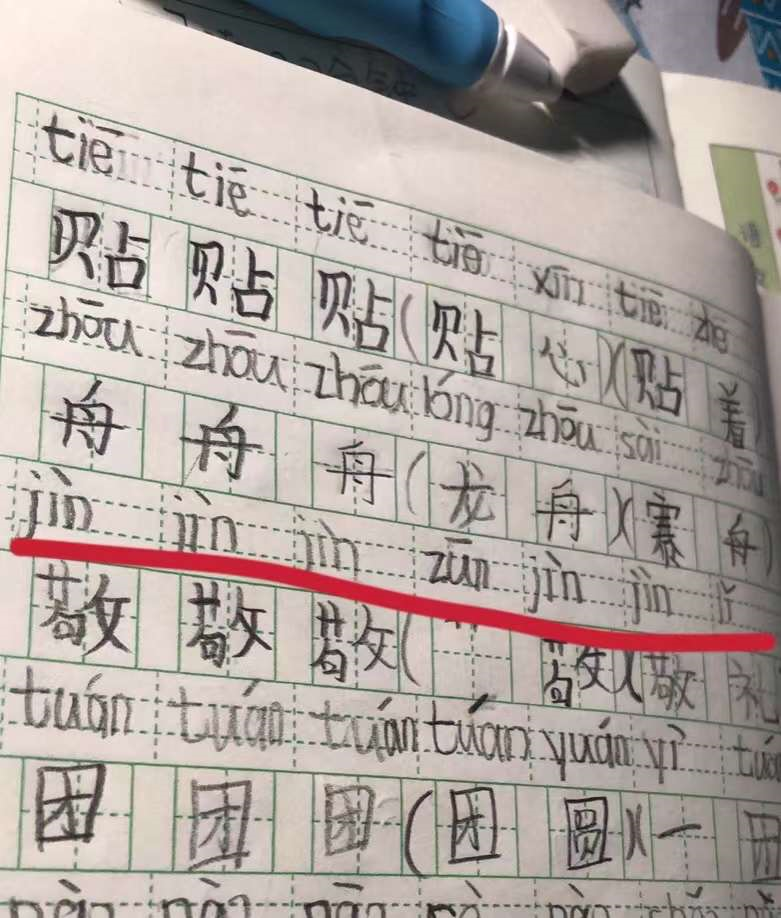 tiē tiē tiē tiē xīn tiē zhe
贴 贴 贴(贴 心)(贴 着)
zhōu zhōu zhōu lóng zhōu sài zhōu
舟 舟 舟(龙 舟)(赛 舟)
jìn jìn jìn zūn jìn jìn lǐ
敬 敬 敬( 敬)(敬 礼
tuán tuán tuán tuán yuán yì tuán
团 团 团(团 圆)(一 团